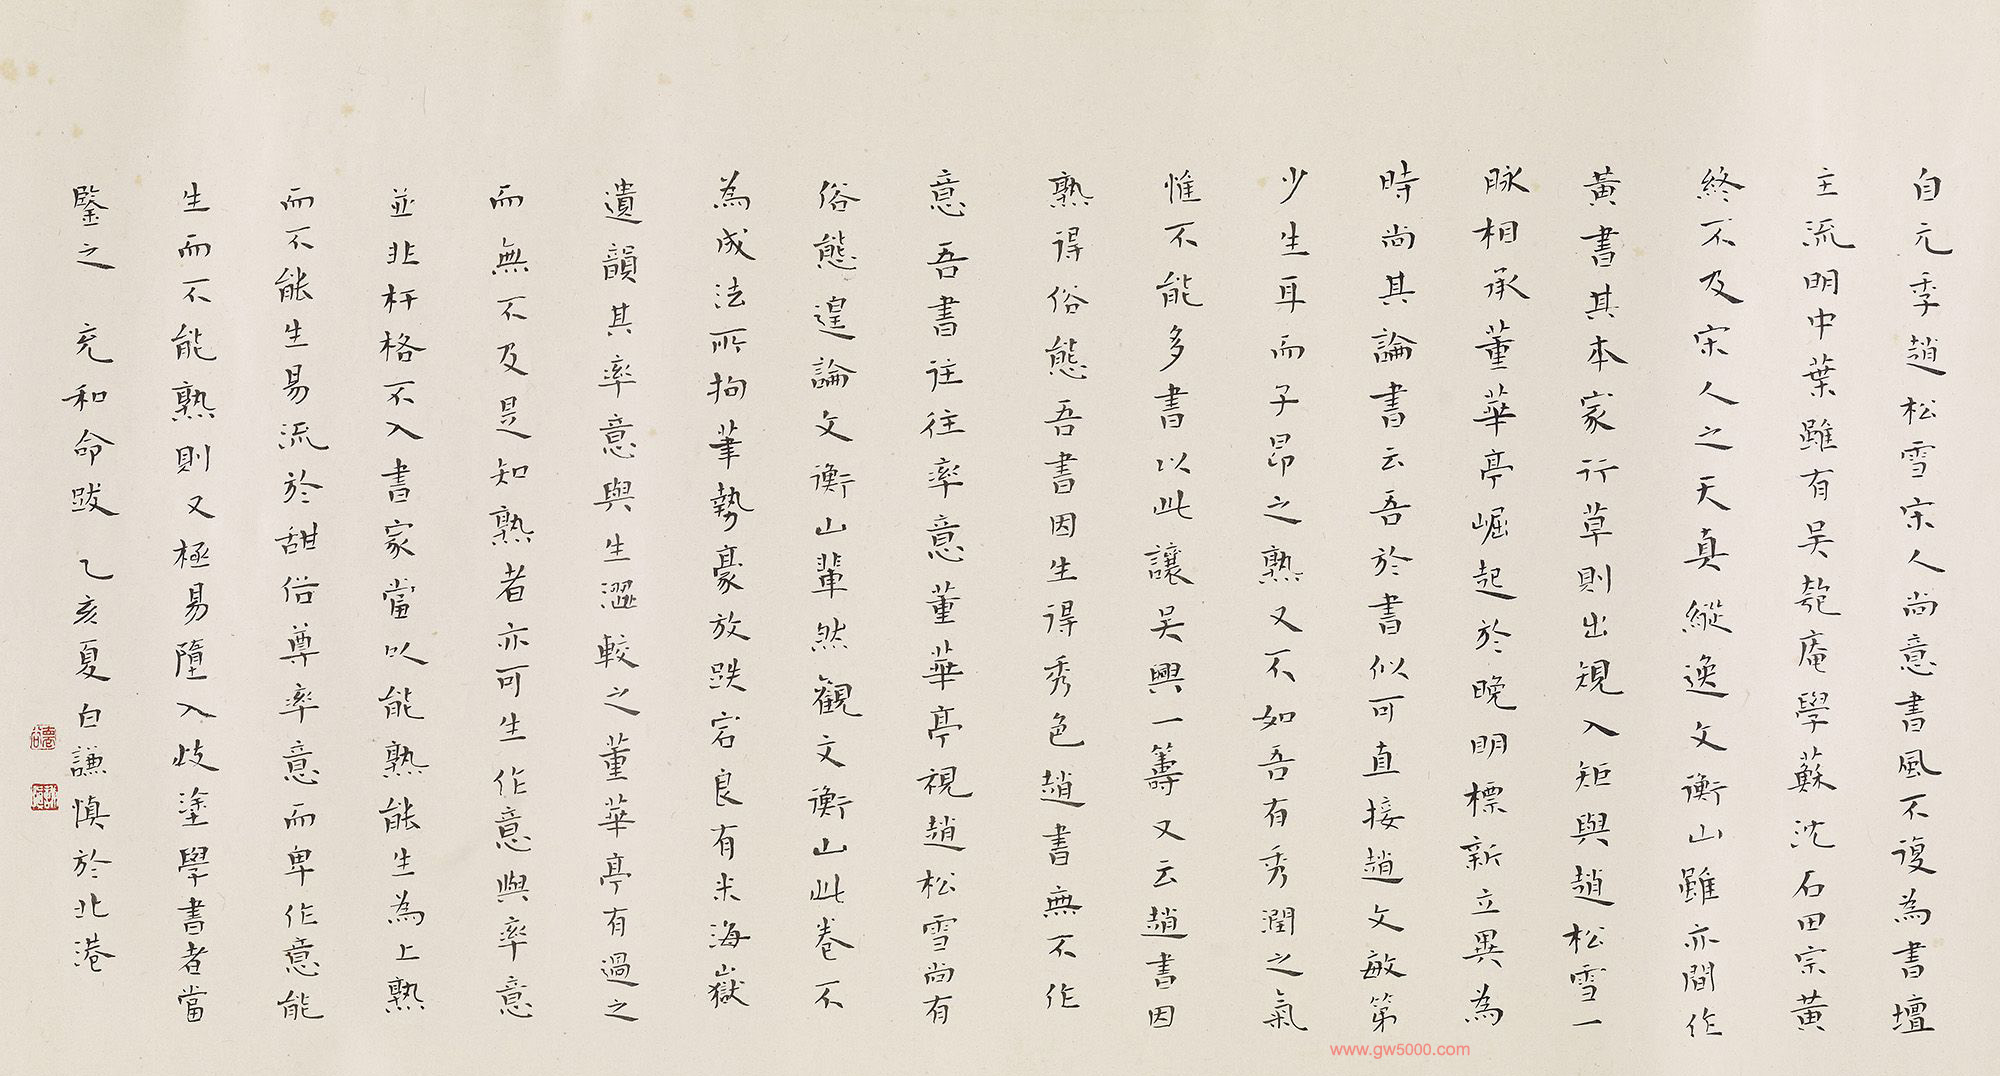 自元季趙松雪宋人尚意書風不復為書壇
主流明中葉雖有吴匏庵學蘇沈石田宗黃
終不及宋人之天真縱逸文衡山雖亦間作
黃書其本家行草則出規入矩與趙松雪一
脉相承董華亭崛起於晚明標新立異為
時尚其論書云吾於書似可直接趙文敏第
少生耳而子昂之熟又不如吾有秀潤之氣
惟不能多書以此讓吴興一籌又云趙書因
熟得俗態吾書因生得秀色趙書無不作
意吾書往往率意董華亭視趙松雪尚有
俗態遑論文衡山輩然觀文衡山此卷不
為成法所拘筆勢豪放跌宕良有米海嶽
遺韻其率意與生澀較之董華亭有過之
而無不及是知熟者亦可生作意與率意
並非杆格不入書家當以能熟能生為上熟
而不能生易流於甜俗尊率意而卑作意能
生而不能熟則又極易墮入歧塗學書者當
鑒之 充和命跋 乙亥夏白謙慎於北港
www.gw5000.com